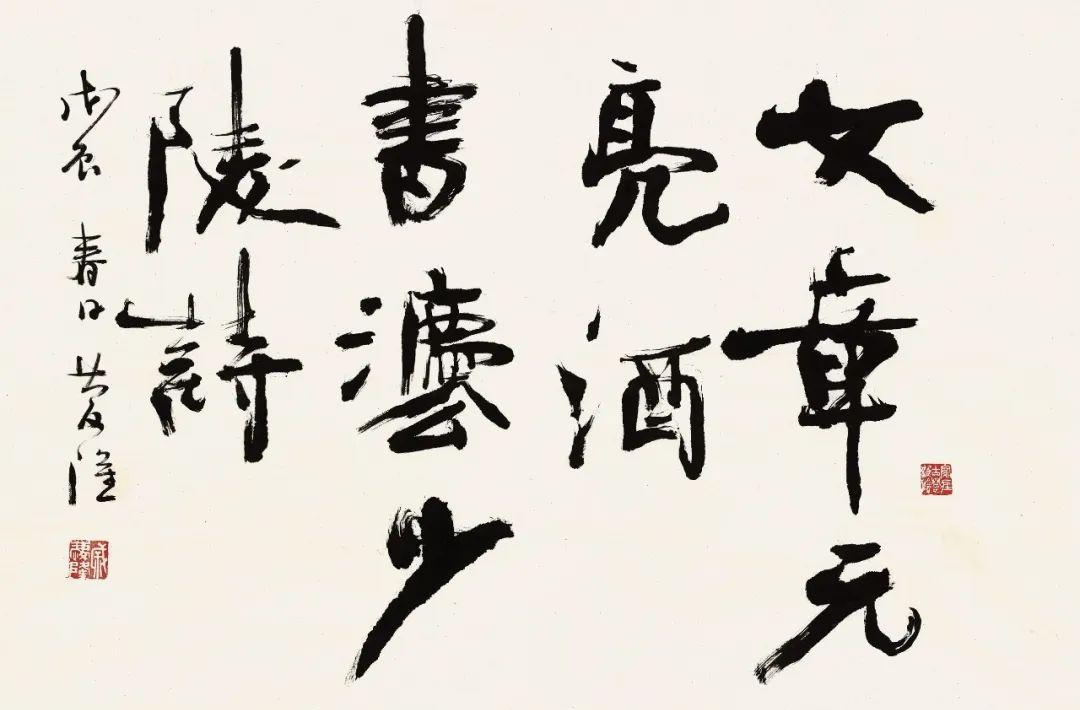 文章元
亮酒
書灋少
陵詩
戊辰春日